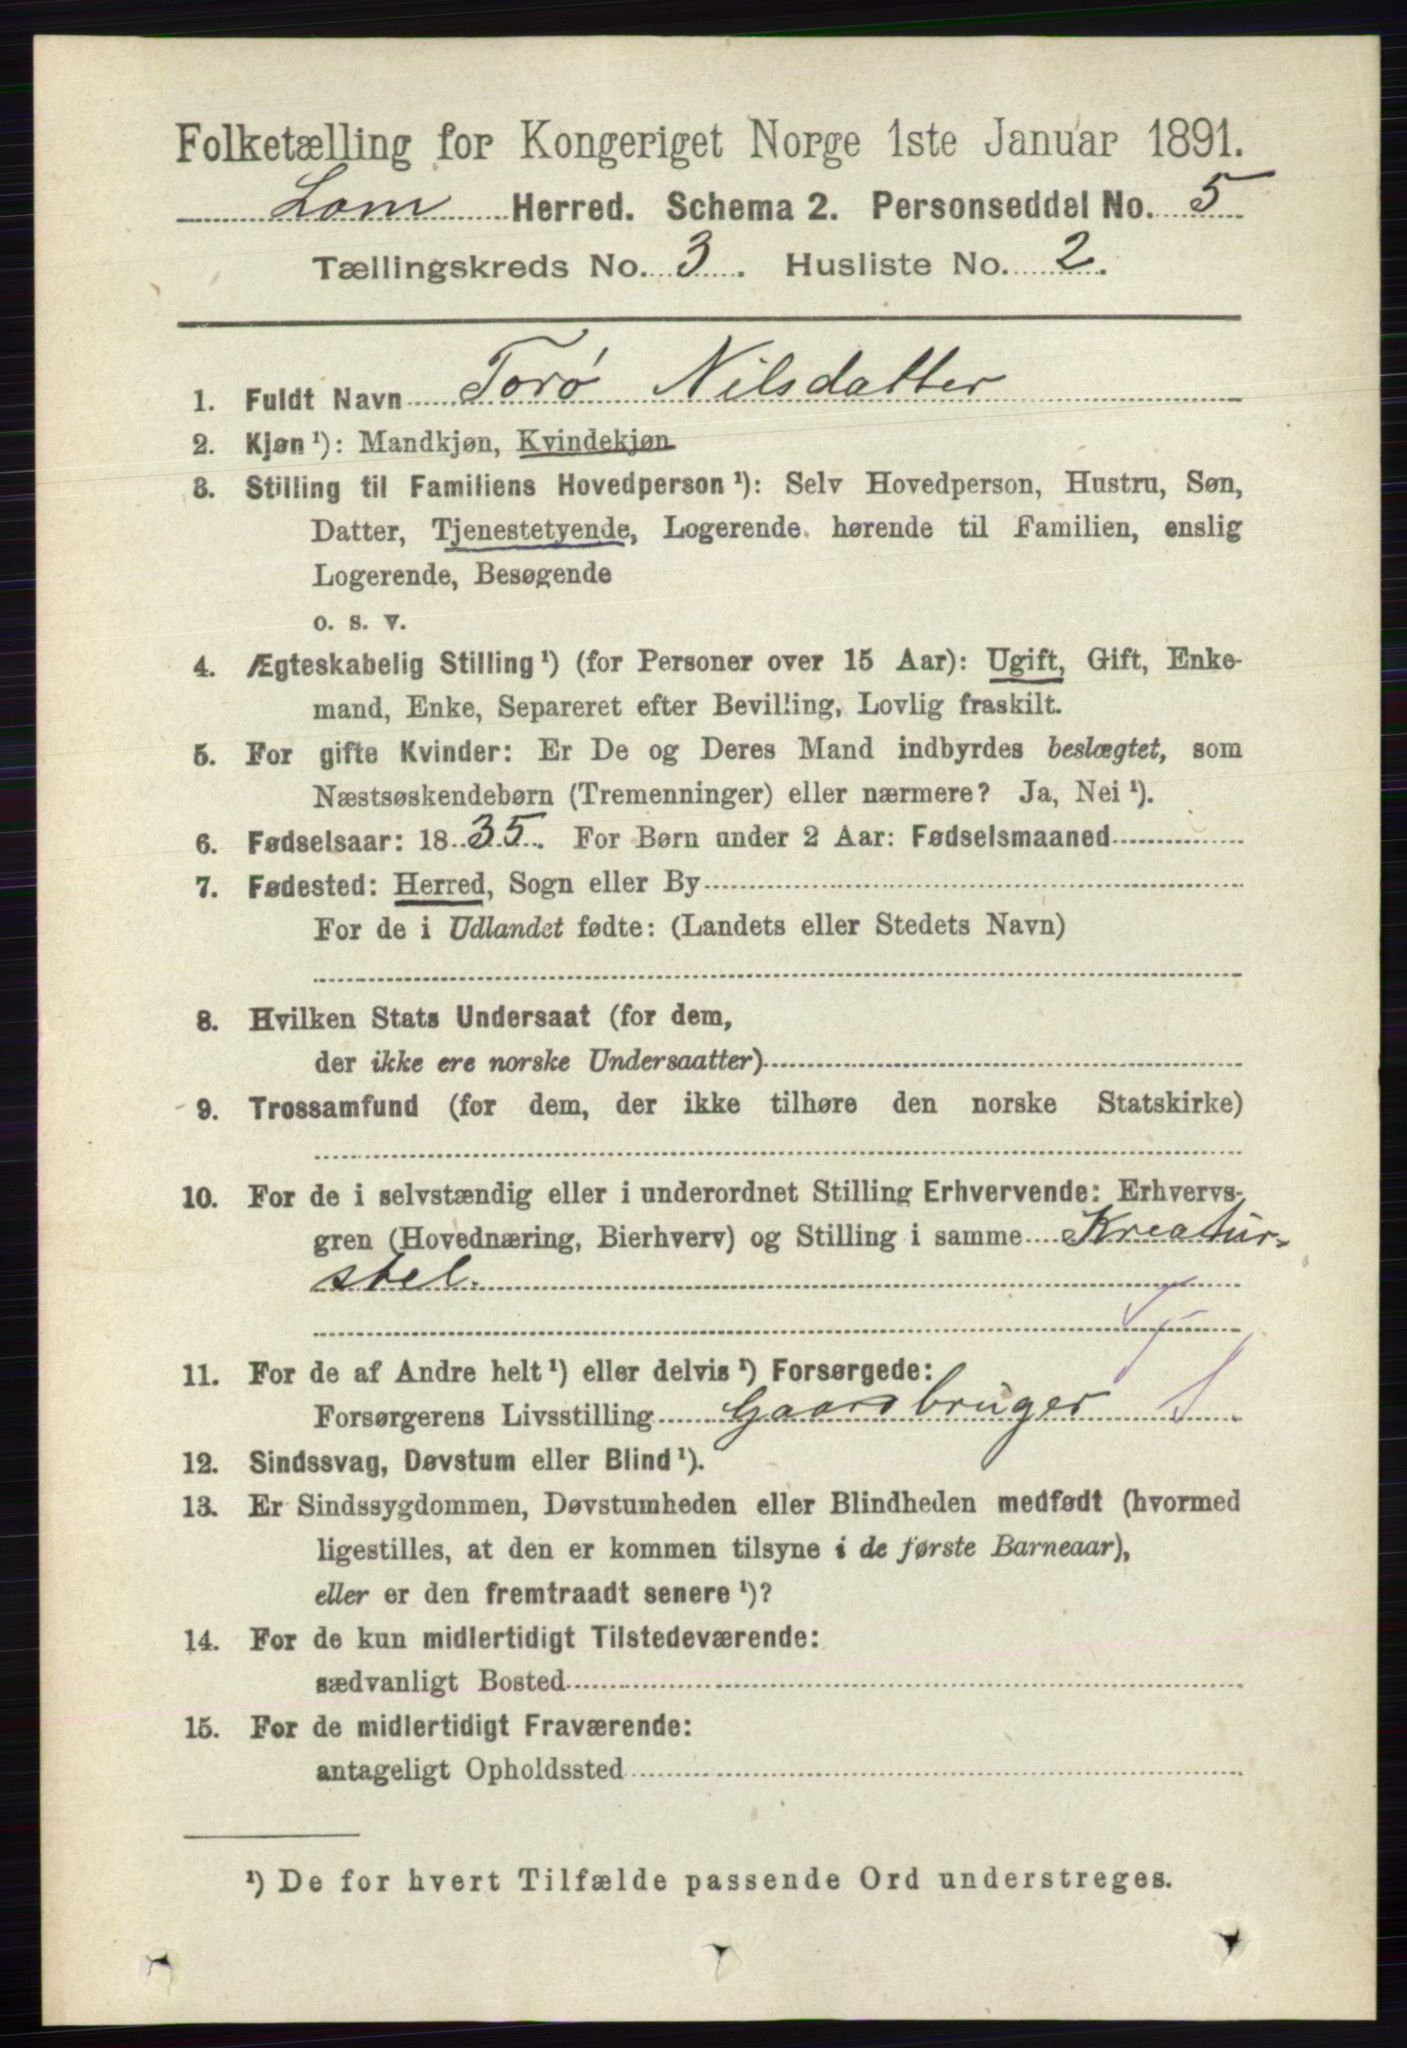 Folketælling for Kongeriget Norge 1ste Januar 1891.
Lom Herred. Schema 2. Personseddel No. 5
Tællingskreds No. 3. Husliste No. 2.
1. Fuldt Navn Torø Nilsdatter
2. Kjøn ¹): Mandkjøn, Kvindekjøn
3. Stilling til Familiens Hovedperson ¹): Selv Hovedperson, Hustru, Søn,
Datter, Tjenestetyende, Logerende hørende til Familien, enslig
Logerende, Besøgende
o. s. v.
4. Ægteskabelig Stilling ¹) (for Personer over 15 Aar): Ugift, Gift, Enke-
mand, Enke, Separeret efter Bevilling, Lovlig fraskilt.
5. For gifte Kvinder: Er De og Deres Mand indbyrdes beslægtet, som
Næstsøskendebørn (Tremenninger) eller nærmere? Ja, Nei ¹).
6. Fødselsaar: 1835. For Børn under 2 Aar: Fødselsmaaned
7. Fødested: Herred, Sogn eller By
For de i Udlandet fødte: (Landets eller Stedets Navn)
8. Hvilken Stats Undersaat (for dem,
der ikke ere norske Undersaatter)
9. Trossamfund (for dem, der ikke tilhøre den norske Statskirke)
10. For de i selvstændig eller i underordnet Stilling Erhvervende: Erhvervs-
gren (Hovednæring, Bierhverv) og Stilling i samme Kreatur-
stel.
11. For de af Andre helt ¹) eller delvis ¹) Forsørgede:
Forsørgerens Livsstilling Gaardbruger
12. Sindssvag, Døvstum eller Blind ¹).
13. Er Sindssygdommen, Døvstumheden eller Blindheden medfødt (hvormed
ligestilles, at den er kommen tilsyne i de første Barneaar),
eller er den fremtraadt senere ¹)?
14. For de kun midlertidigt Tilstedeværende:
sædvanligt Bosted
15. For de midlertidigt Fraværende:
antageligt Opholdssted
¹) De for hvert Tilfælde passende Ord understreges.